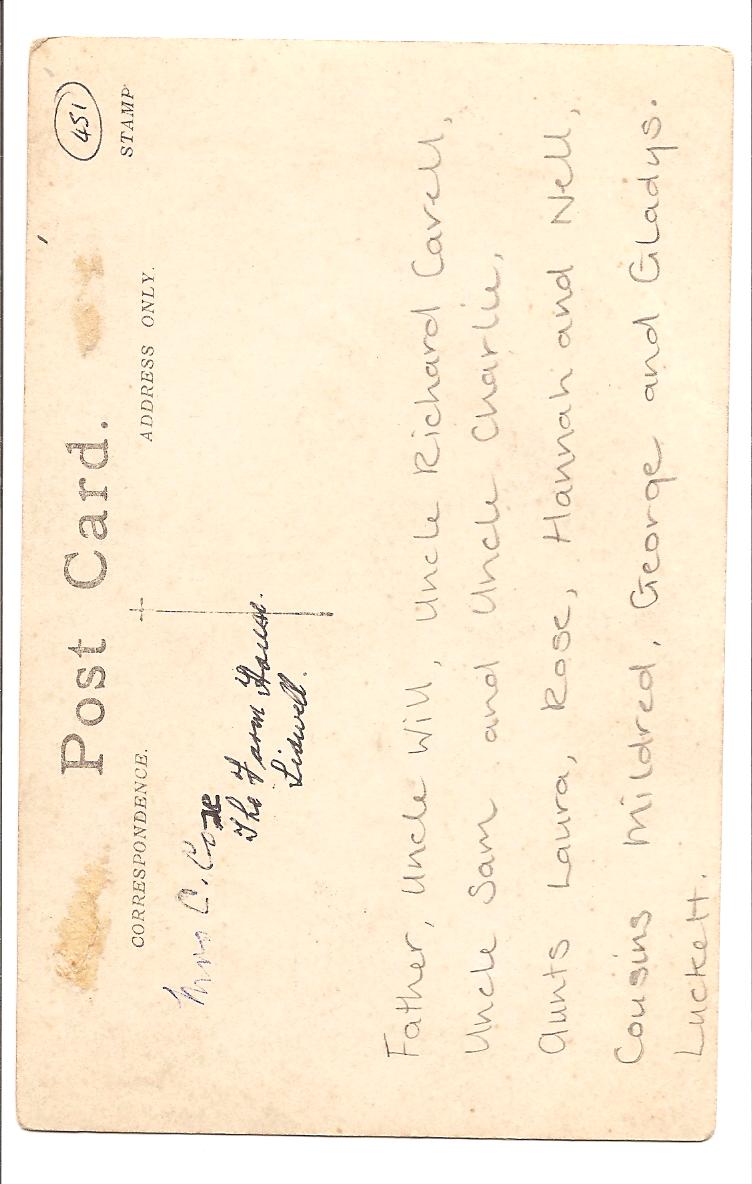 451
Post Card.
STAMP
CORRESPONDENCE.
ADDRESS ONLY.
Mrs C. Coxe
The Farm House.
Lidwell.
Father, Uncle Will, Uncle Richard Cavell,
Uncle Sam and Uncle Charlie,
Aunts Laura, Rose, Hannah and Nell,
Cousins Mildred, George and Gladys.
Luckett.